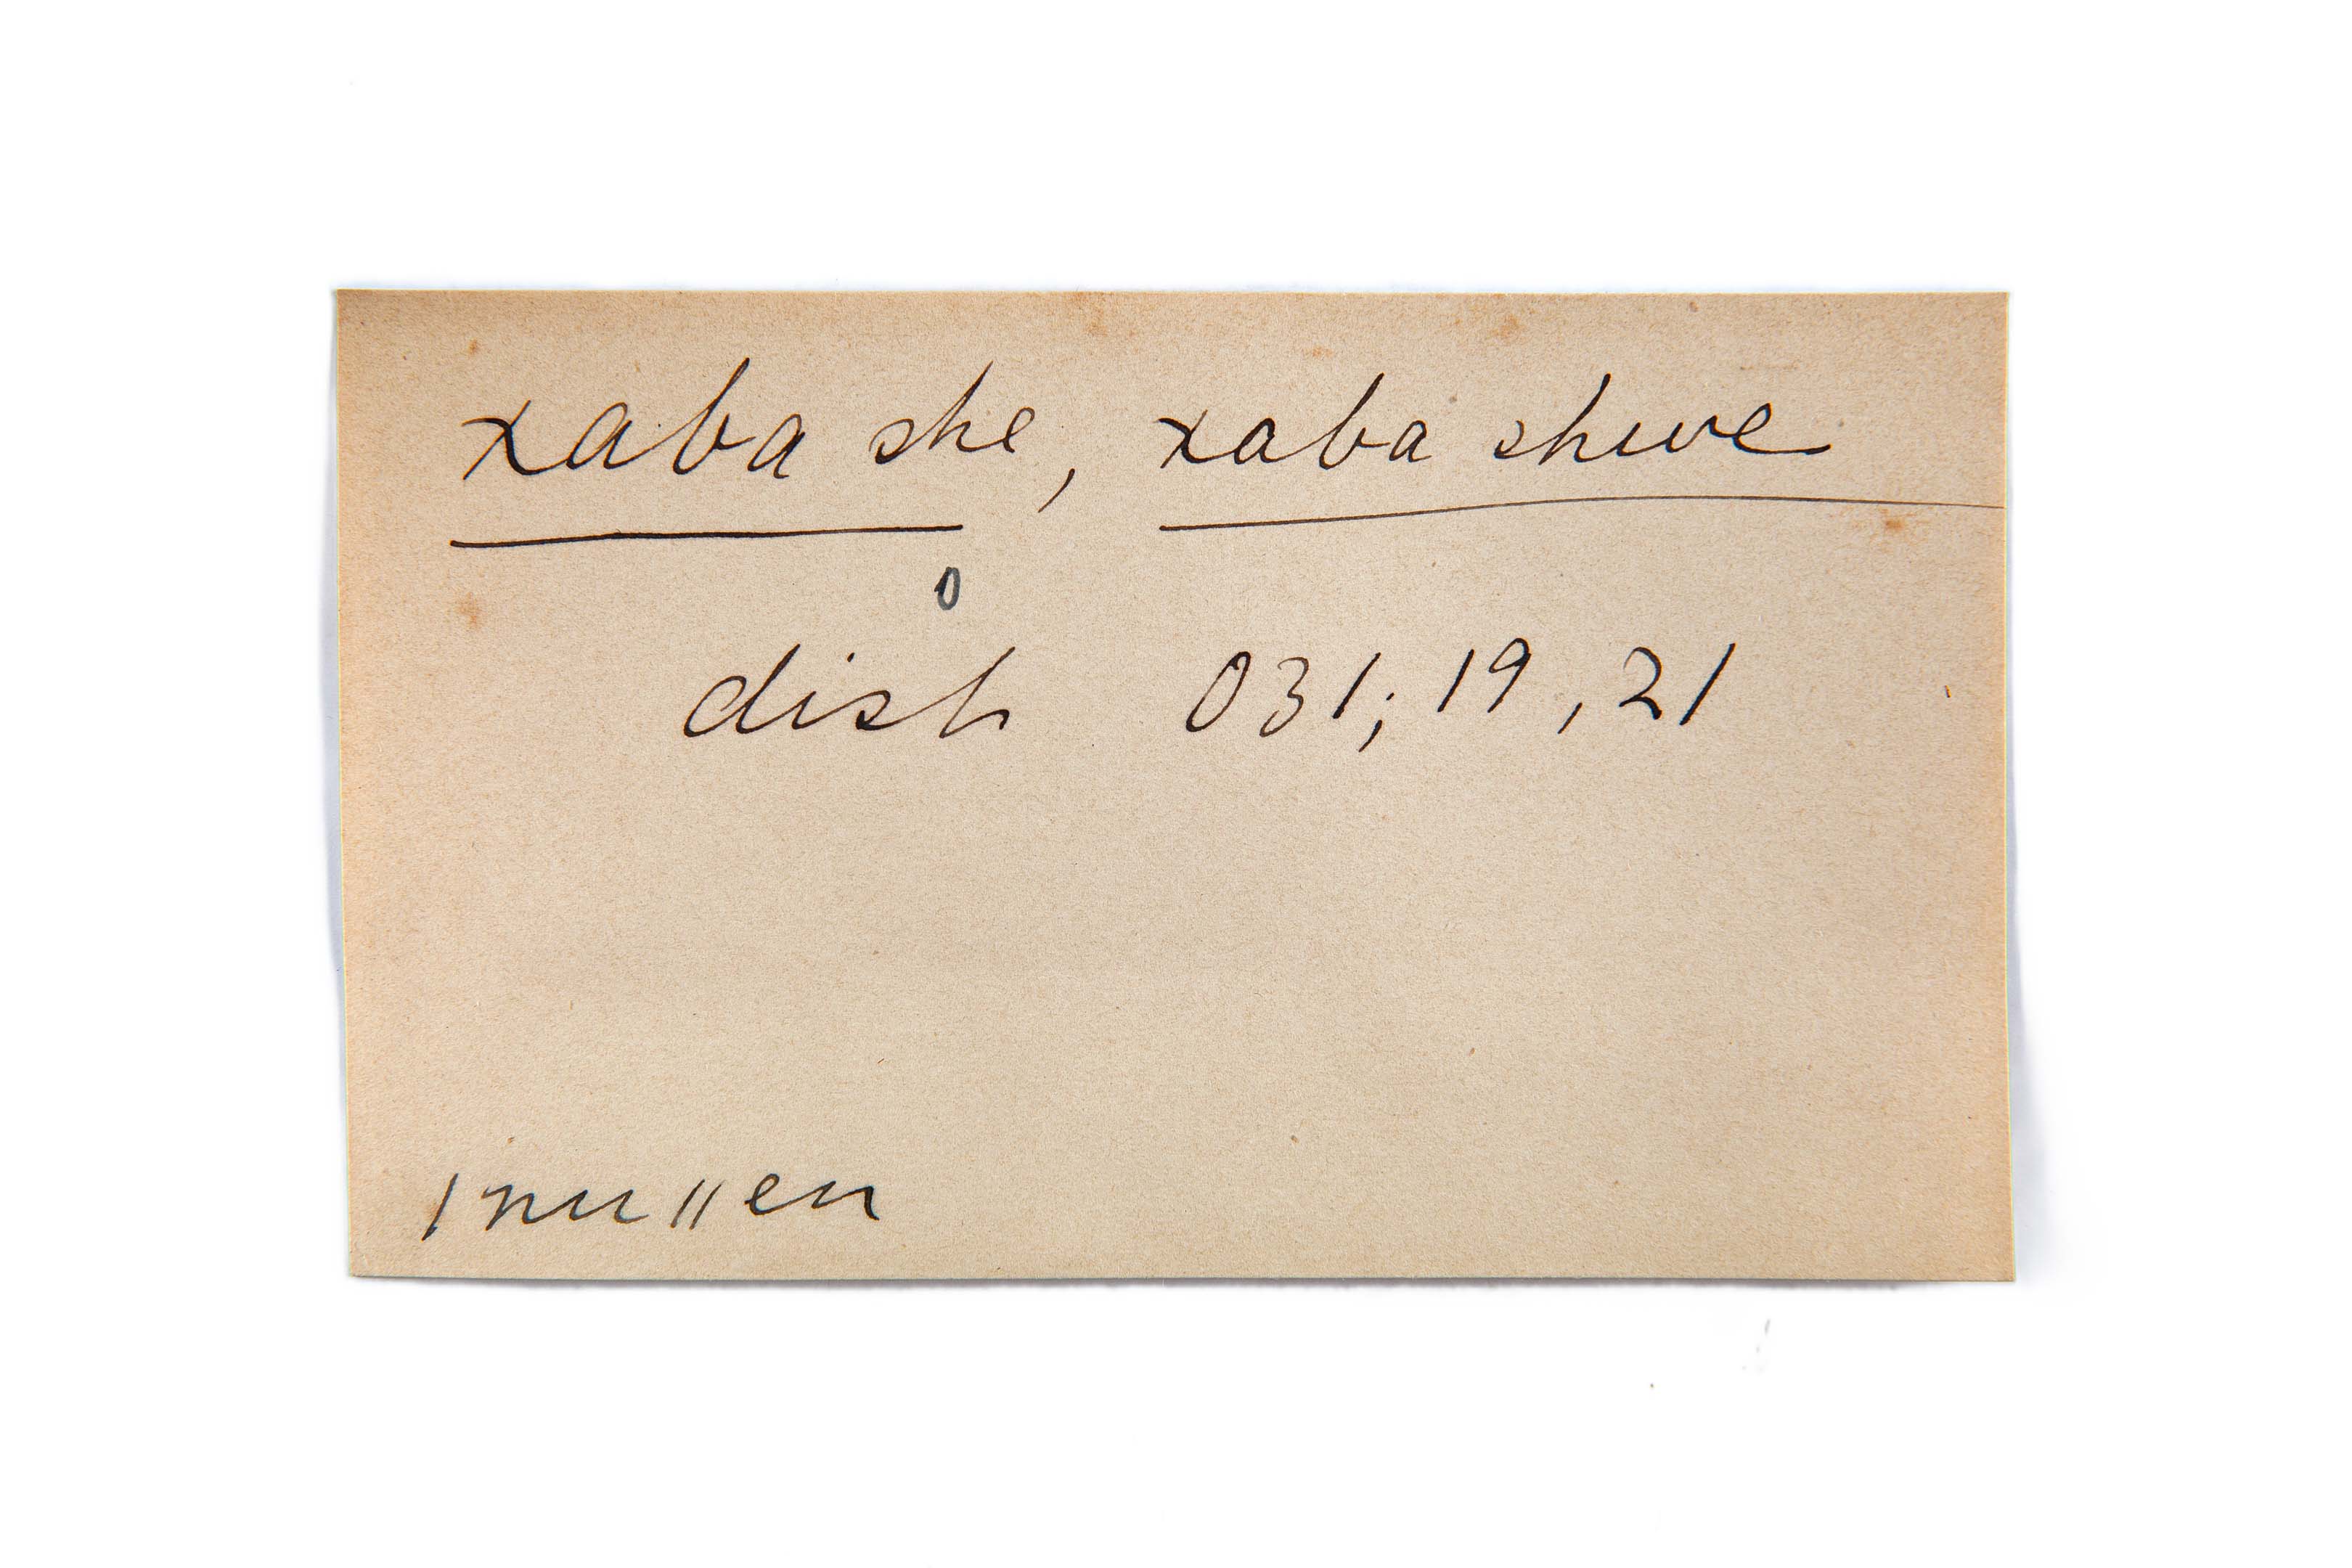 xaba she, xaba shwe
0
dish 031; 19, 21
|nu||en